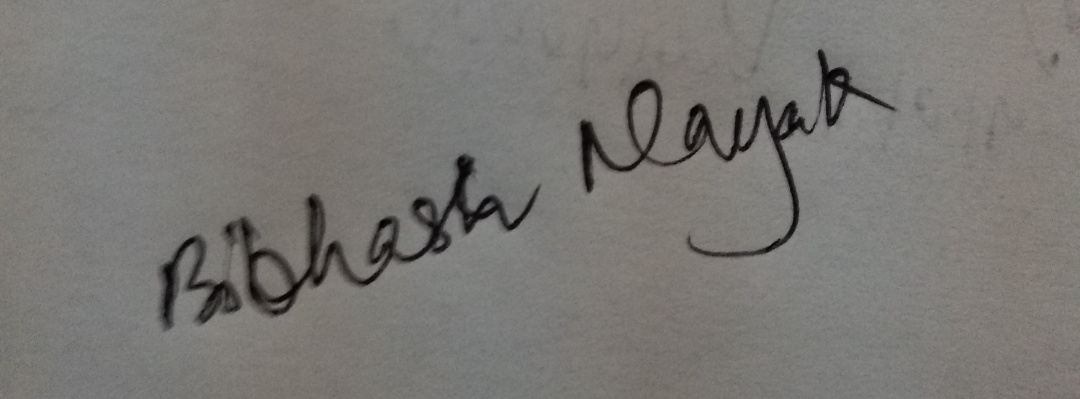 Bibhasha Nayak